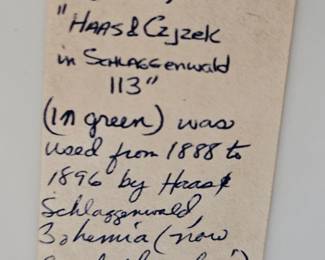 "HAAS & CZJZEK
in SCHLAGGENWALD
113"
(in green) was
used from 1888 to
1896 by Haas &
Schlaggenwald,
Bohemia (now